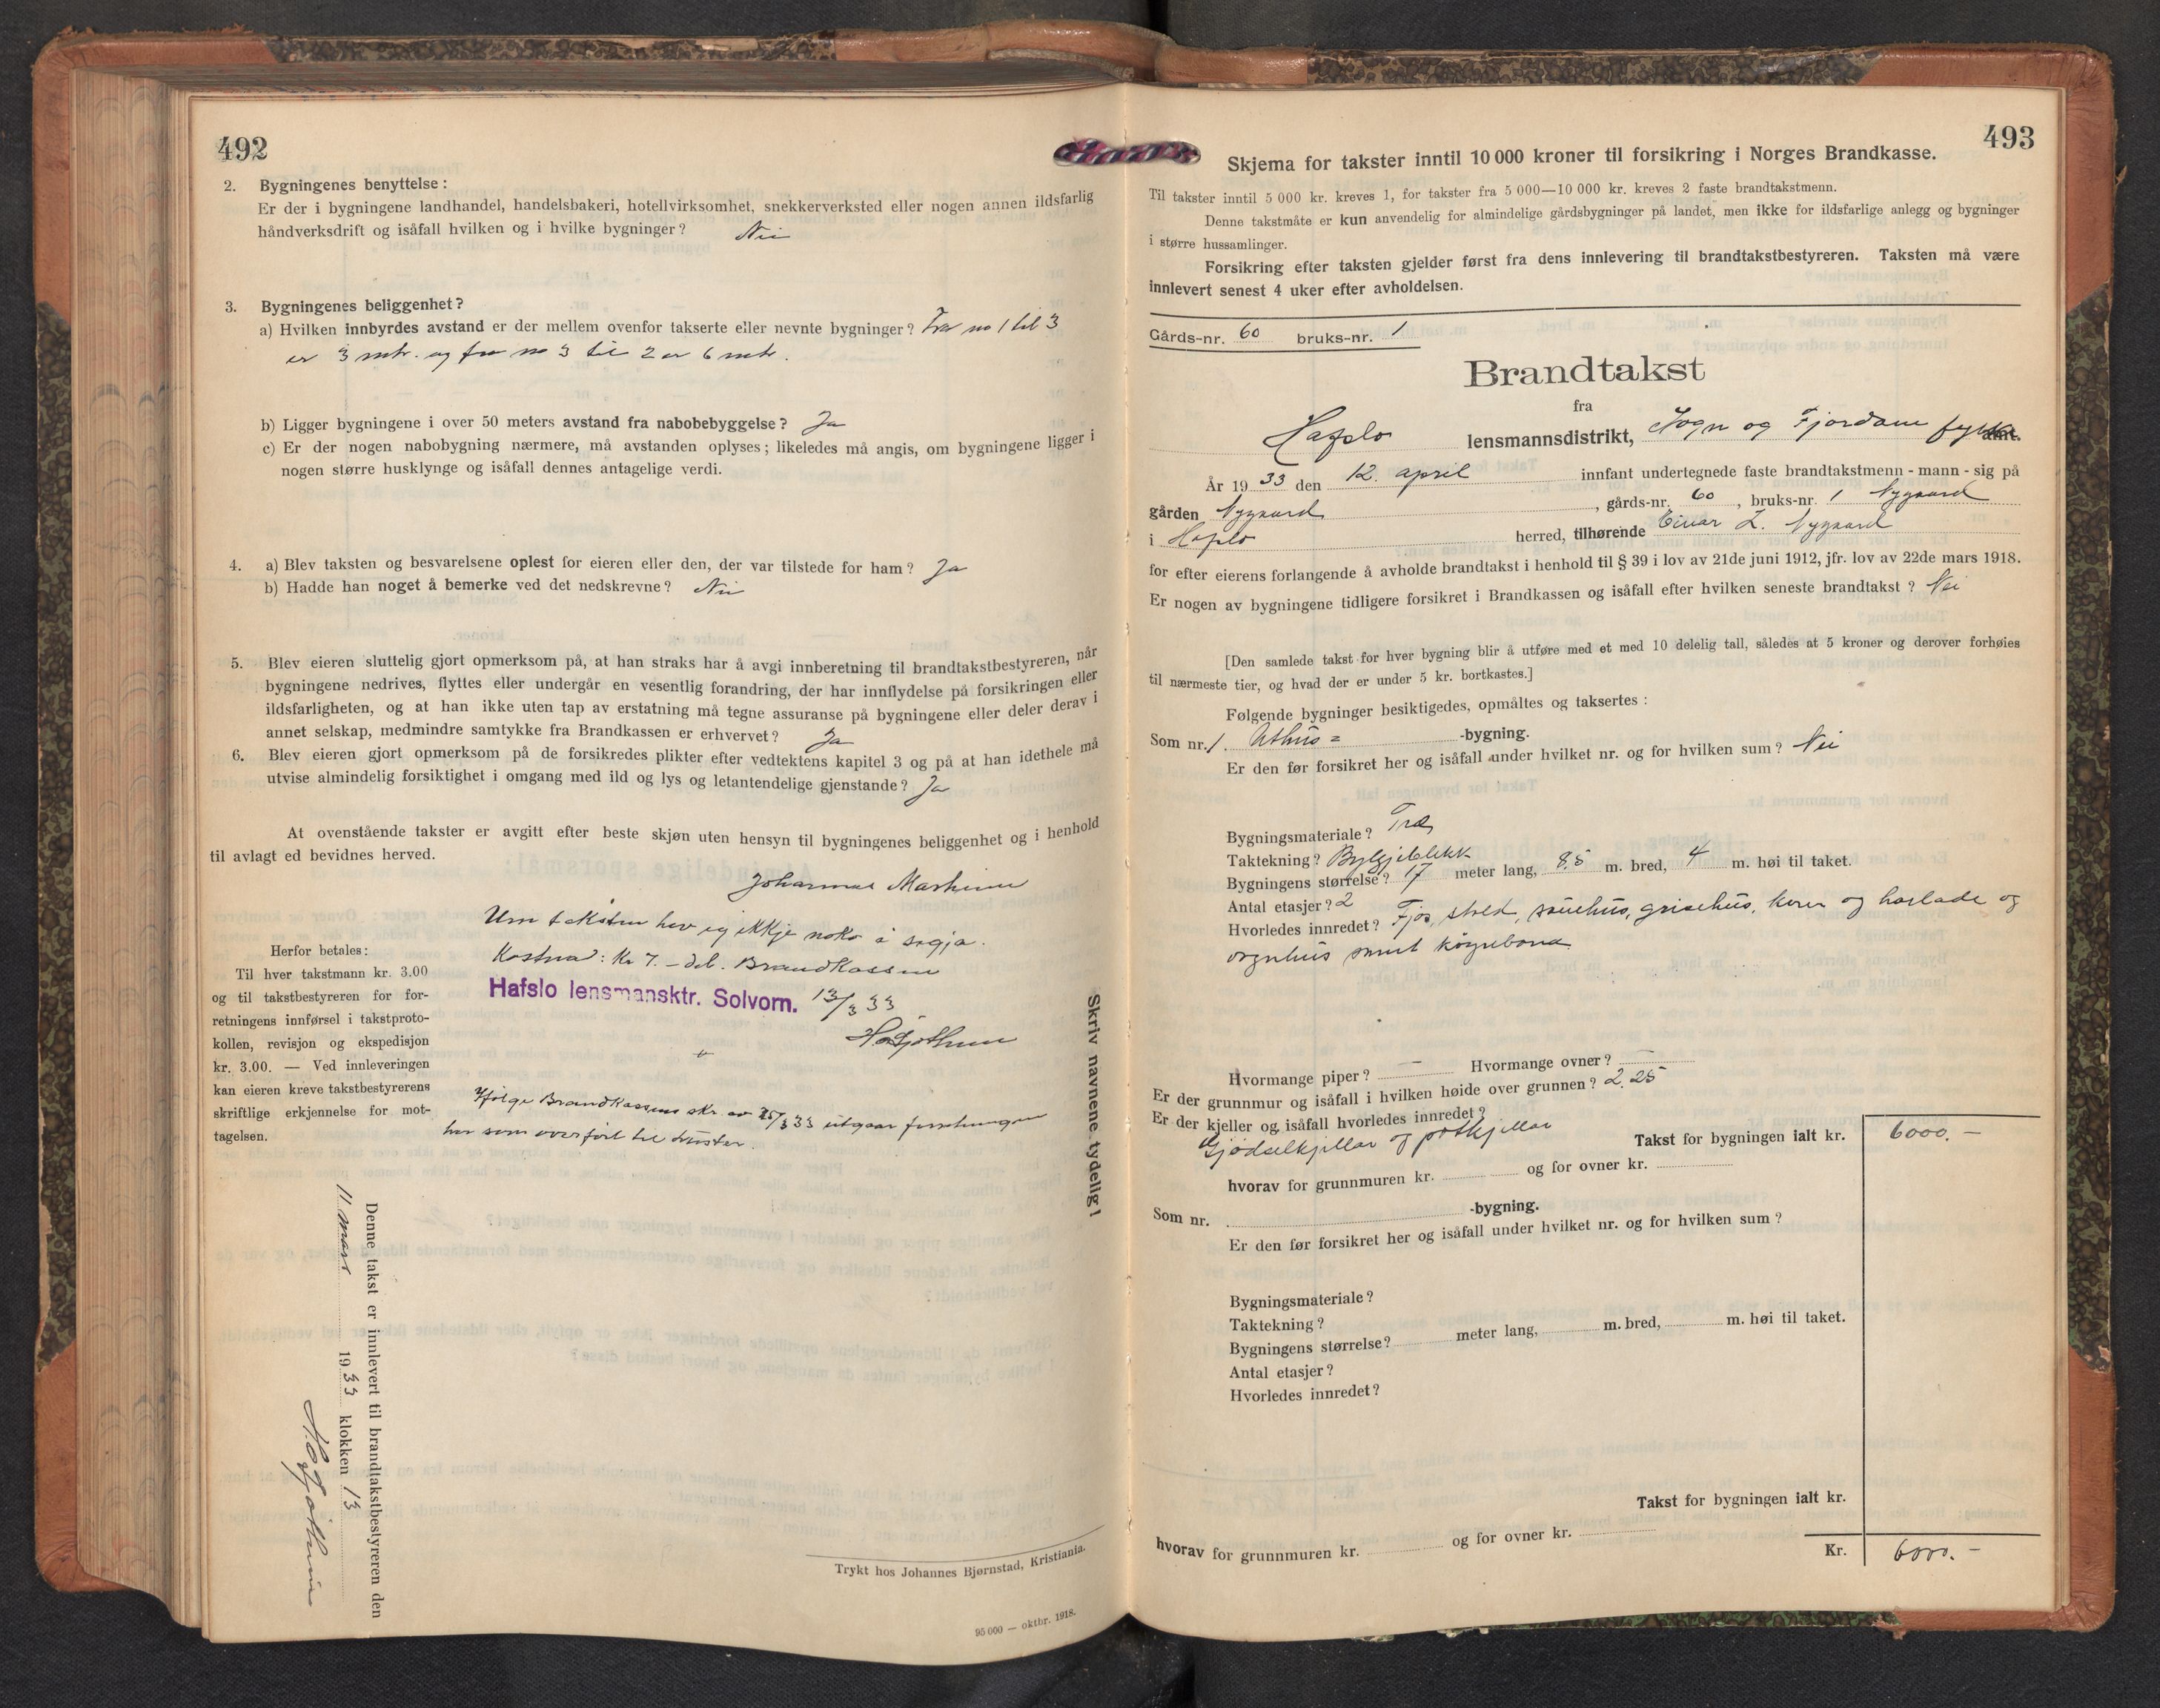 492
2. Bygningenes benyttelse:
Er der i bygningene landhandel, handelsbakeri, hotellvirksomhet, snekkerverksted eller nogen annen ildsfarlig
håndverksdrift og isåfall hvilken og i hvilke bygninger? Nei
3. Bygningenes beliggenhet?
a) Hvilken innbyrdes avstand er der mellem ovenfor takserte eller nevnte bygninger? Fra no 1 til 3
er 3 mtr. og fra no 3 til 2 er 6 mtr.
b) Ligger bygningene i over 50 meters avstand fra nabobebyggelse? Ja
c) Er der nogen nabobygning nærmere, må avstanden oplyses; likeledes må angis, om bygningene ligger i
nogen større husklynge og isåfall dennes antagelige verdi.
4. a) Blev taksten og besvarelsene oplest for eieren eller den, der var tilstede for ham? Ja
b) Hadde han noget å bemerke ved det nedskrevne? Nei
5. Blev eieren sluttelig gjort opmerksom på, at han straks har å avgi innberetning til brandtakstbestyreren, når
bygningene nedrives, flyttes eller undergår en vesentlig forandring, der har innflydelse på forsikringen eller
ildsfarligheten, og at han ikke uten tap av erstatning må tegne assuranse på bygningene eller deler derav i
annet selskap, medmindre samtykke fra Brandkassen er erhvervet? Ja
6. Blev eieren gjort opmerksom på de forsikredes plikter efter vedtektens kapitel 3 og på at han idethele må
utvise almindelig forsiktighet i omgang med ild og lys og letantendelige gjenstande? Ja
At ovenstående takster er avgitt efter beste skjøn uten hensyn til bygningenes beliggenhet og i henhold
til avlagt ed bevidnes herved.
Johannes
Um taksten hev eg ikkje noko å segja.
Kostnad: Kr 7.- deb. Brandkassen
Hafslo lensmansktr. Solvorn. 13/3 33
Herfor betales:
Til hver takstmann kr. 3.00
og til takstbestyreren for for-
retningens innførsel i takstproto-
kollen, revisjon og ekspedisjon
kr. 3.00. — Ved innleveringen
kan eieren kreve takstbestyrerens
skriftlige erkjennelse for mot-
tagelsen.
Ifølge Brandkassens skr. av 25/3 33 utgaar
her som overført til Luster.
Skriv navnene tydelig!
Denne takst er innlevert til brandtakstbestyreren den
11 mars 1933 klokken 13
Trykt hos Johannes Bjørnstad, Kristiania.
95 000 — oktbr. 1918.
493
Skjema for takster inntil 10 000 kroner til forsikring i Norges Brandkasse.
Til takster inntil 5 000 kr. kreves 1, for takster fra 5 000—10 000 kr. kreves 2 faste brandtakstmenn.
Denne takstmåte er kun anvendelig for almindelige gårdsbygninger på landet, men ikke for ildsfarlige anlegg og bygninger
i større hussamlinger.
Forsikring efter taksten gjelder først fra dens innlevering til brandtakstbestyreren. Taksten må være
innlevert senest 4 uker efter avholdelsen.
Gårds-nr. 60 bruks-nr. 1
Brandtakst
fra
Hafslo lensmannsdistrikt, Sogn og Fjordane fylke amt.
År 1933 den 12. april innfant undertegnede faste brandtakstmenn - mann - sig på
gården Nygaard, gårds-nr. 60, bruks-nr. 1 Nygaard
i Hafslo herred, tilhørende Einar L. Nygaard
for efter eierens forlangende å avholde brandtakst i henhold til § 39 i lov av 21de juni 1912, jfr. lov av 22de mars 1918.
Er nogen av bygningene tidligere forsikret i Brandkassen og isåfall efter hvilken seneste brandtakst? Nei
[Den samlede takst for hver bygning blir å utføre med et med 10 delelig tall, således at 5 kroner og derover forhøies
til nærmeste tier, og hvad der er under 5 kr. bortkastes.]
Følgende bygninger besiktigedes, opmåltes og taksertes:
Som nr. 1. Uthus= -bygning.
Er den før forsikret her og isåfall under hvilket nr. og for hvilken sum? Nei
Bygningsmateriale? Træ
Taktekning? Bylgjeblekk
Bygningens størrelse? 17 meter lang, 8.5 m. bred, 4 m. høi til taket.
Antal etasjer? 2
Hvorledes innredet? Fjos, stald, sauehus, grisehus, korn og høilade og
vognhus samt køyrebona
Hvormange piper? — Hvormange ovner? —
Er der grunnmur og isåfall i hvilken høide over grunnen? 2.25
Er der kjeller og isåfall hvorledes innredet?
Gjødselkjellar og potkjellar
Takst for bygningen ialt kr. 6000.-
hvorav for grunnmuren kr. og for ovner kr.
Som nr. -bygning.
Er den før forsikret her og isåfall under hvilket nr. og for hvilken sum?
Bygningsmateriale?
Taktekning?
Bygningens størrelse? meter lang, m. bred, m. høi til taket.
Antal etasjer?
Hvorledes innredet?
Takst for bygningen ialt kr.
hvorav for grunnmuren kr. og for ovner kr.
Kr. 6000.-